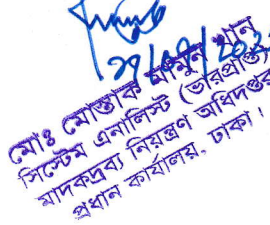 মোঃ মোস্তাক মামুন খান
সিস্টেম এনালিস্ট (ভারপ্রাপ্ত)
মাদকদ্রব্য নিয়ন্ত্রণ অধিদপ্তর
প্রধান কার্যালয়, ঢাকা।